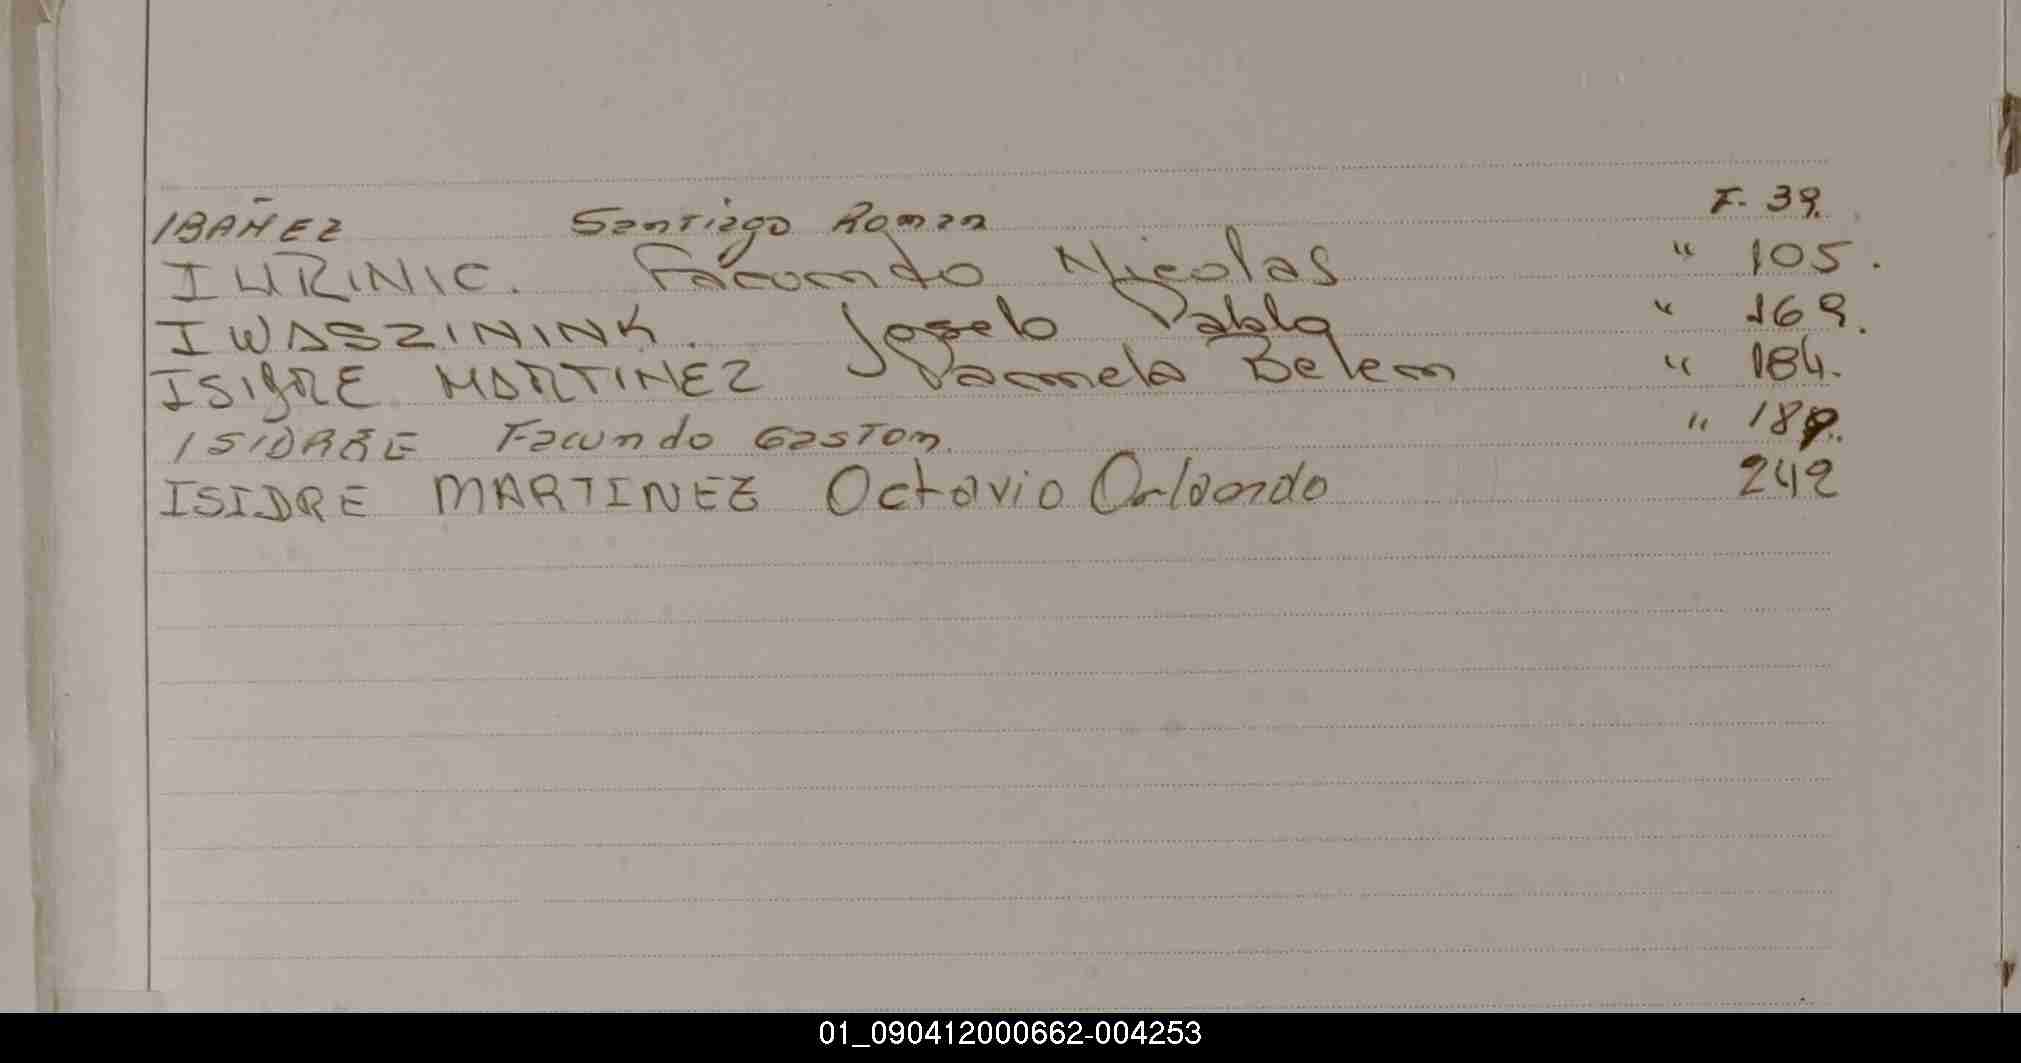 IBAÑEZ Santiago Roman F. 39.
IURINIC. Facundo Nicolas " 105.
IWASZININK. Joselo Pablo " 169.
ISIDRE MARTINEZ Pamela Belem " 184.
ISIDRRE Facundo Gaston. " 189.
ISIDRE MARTINEZ Octavio Orlando 242
01_090412000662-004253